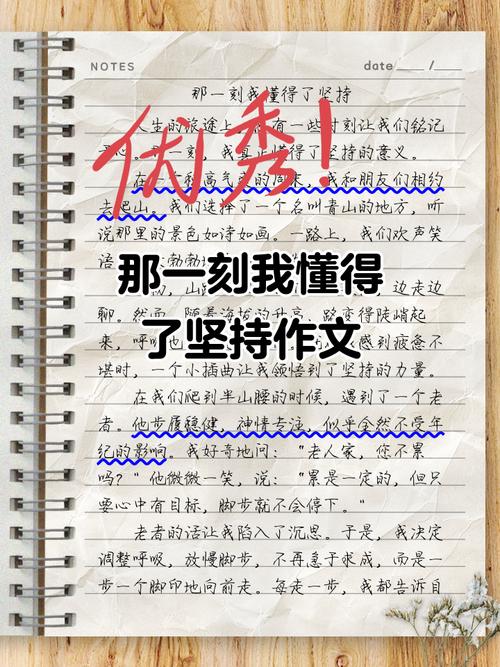 NOTES
date /
那一刻我懂得了坚持
优秀！
人生的旅途上 有一些时刻让我们铭记
心 一刻，我真 懂得了坚持的意义。
在一个秋高气爽的周末，我和朋友们相约
去爬山。我们选择了一个名叫青山的地方，听
说那里的景色如诗如画。一路上，我们欢声笑
语
那一刻我懂得
了坚持作文
山 ，边走边
聊。然而，随着海拔的升高，路变得陡峭起
来，呼吸也 感到疲惫不
堪时，一个小插曲让我领悟到了坚持的力量。
在我们爬到半山腰的时候，遇到了一个老
者。他步履稳健，神情专注，似乎全然不受年
纪的影响。我好奇地问：“老人家，您不累
吗？”他微微一笑，说：“累是一定的，但只
要心中有目标，脚步就不会停下。”
老者的话让我陷入了沉思。于是，我决定
调整呼吸，放慢脚步，不再急于求成，而是一
步一个脚印地向前走。每走一步，我都告诉自